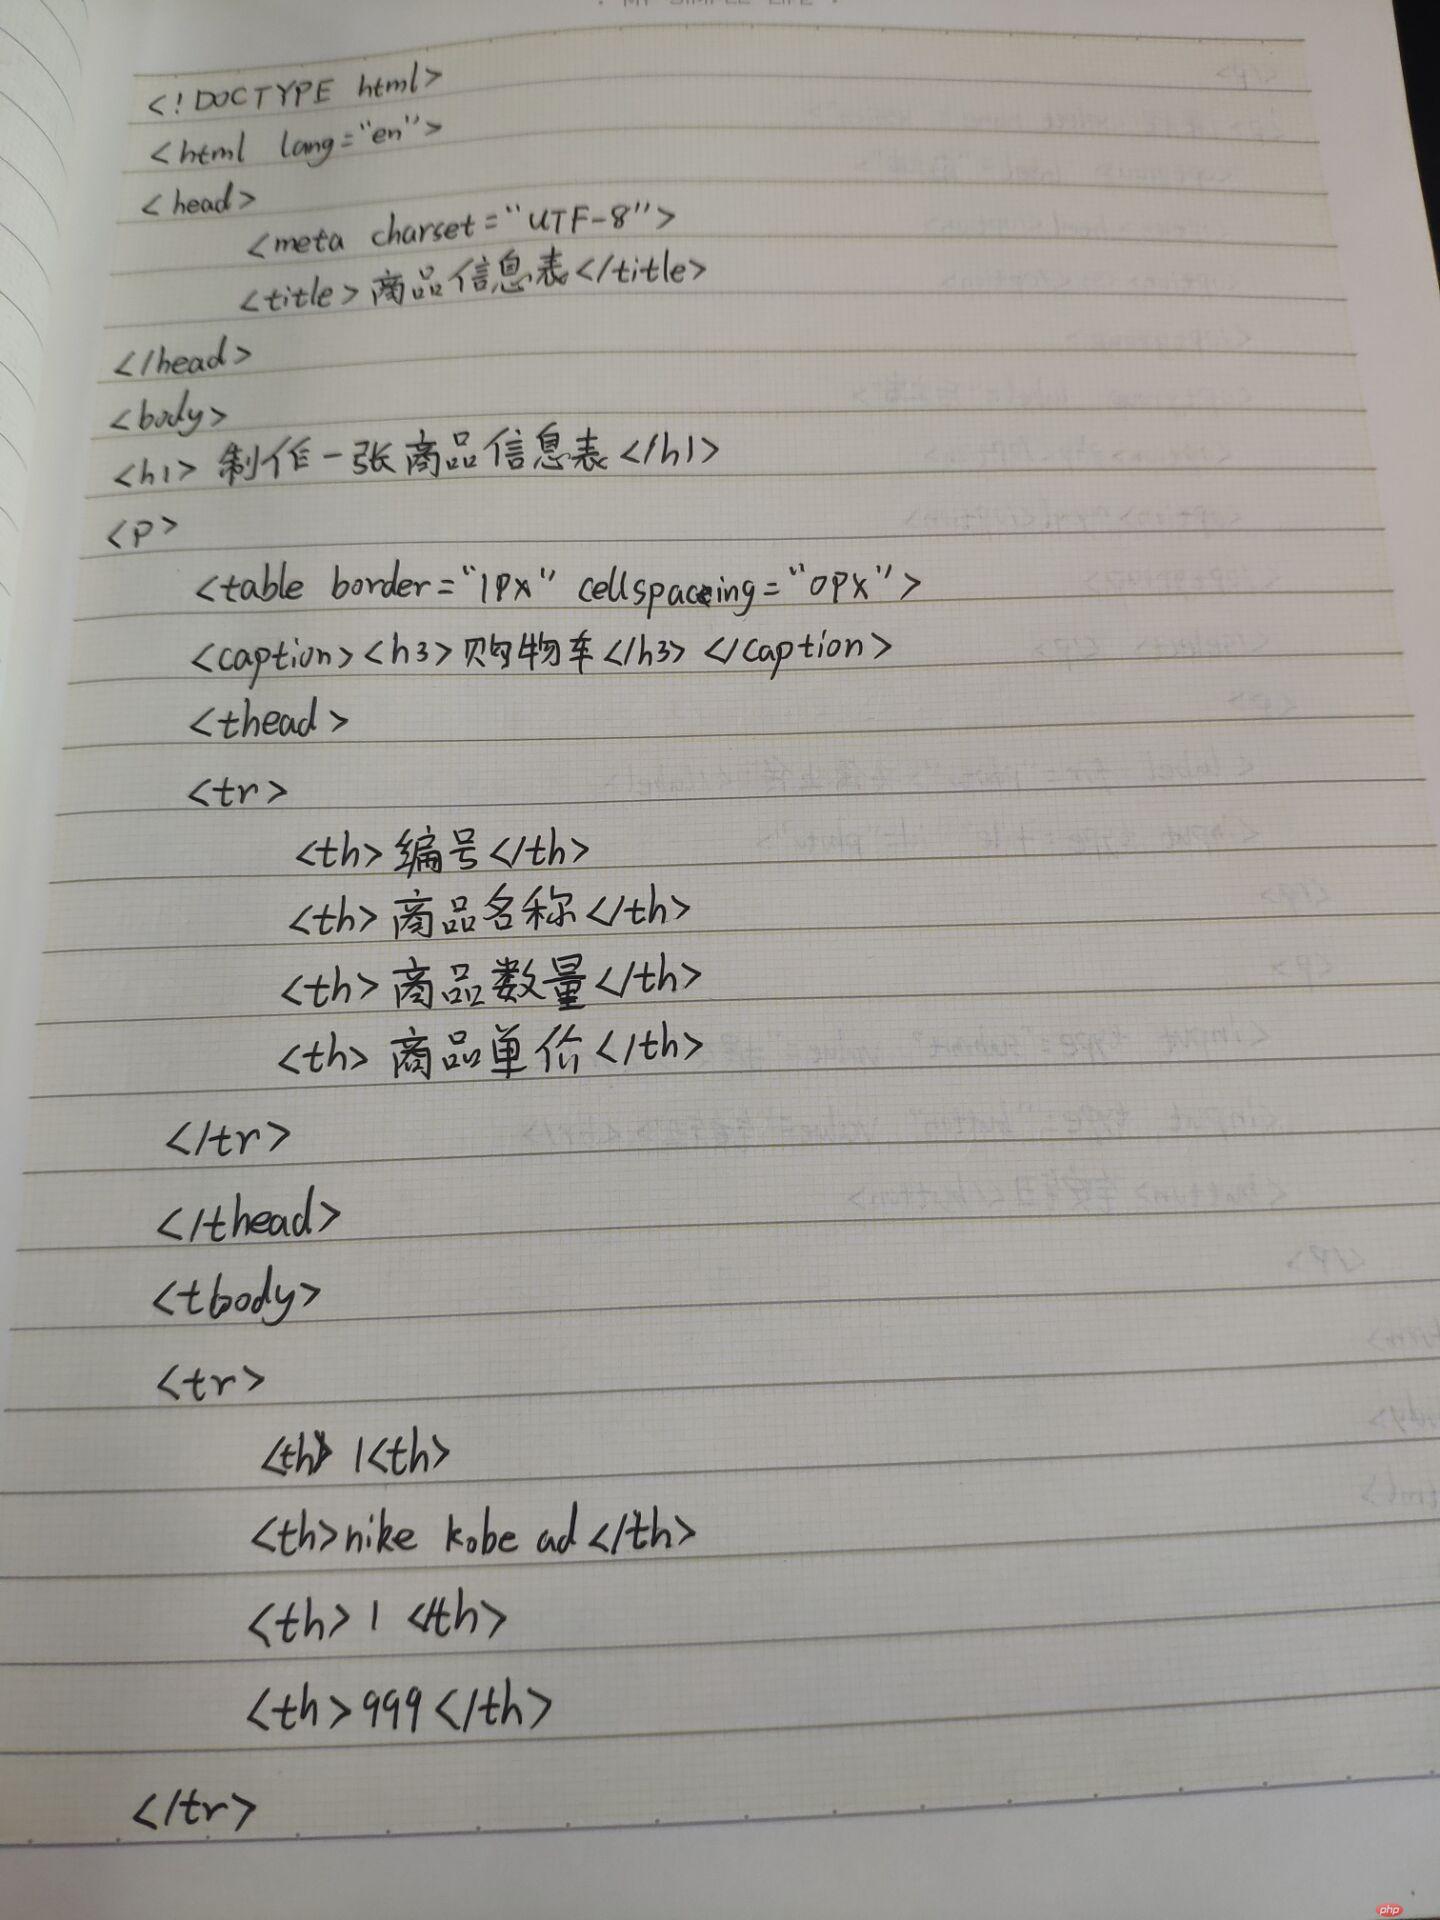 · MY SIMPLE LIFE ·
<!DOCTYPE html>
<html lang="en">
<head>
<meta charset="UTF-8">
<title>商品信息表</title>
</head>
<body>
<h1>制作一张商品信息表</h1>
<p>
<table border="1px" cellspacing="0px">
<caption><h3>购物车</h3></caption>
<thead>
<tr>
<th>编号</th>
<th>商品名称</th>
<th>商品数量</th>
<th>商品单价</th>
</tr>
</thead>
<tbody>
<tr>
<th>1<th>
<th>nike kobe ad</th>
<th>1</th>
<th>999</th>
</tr>
php